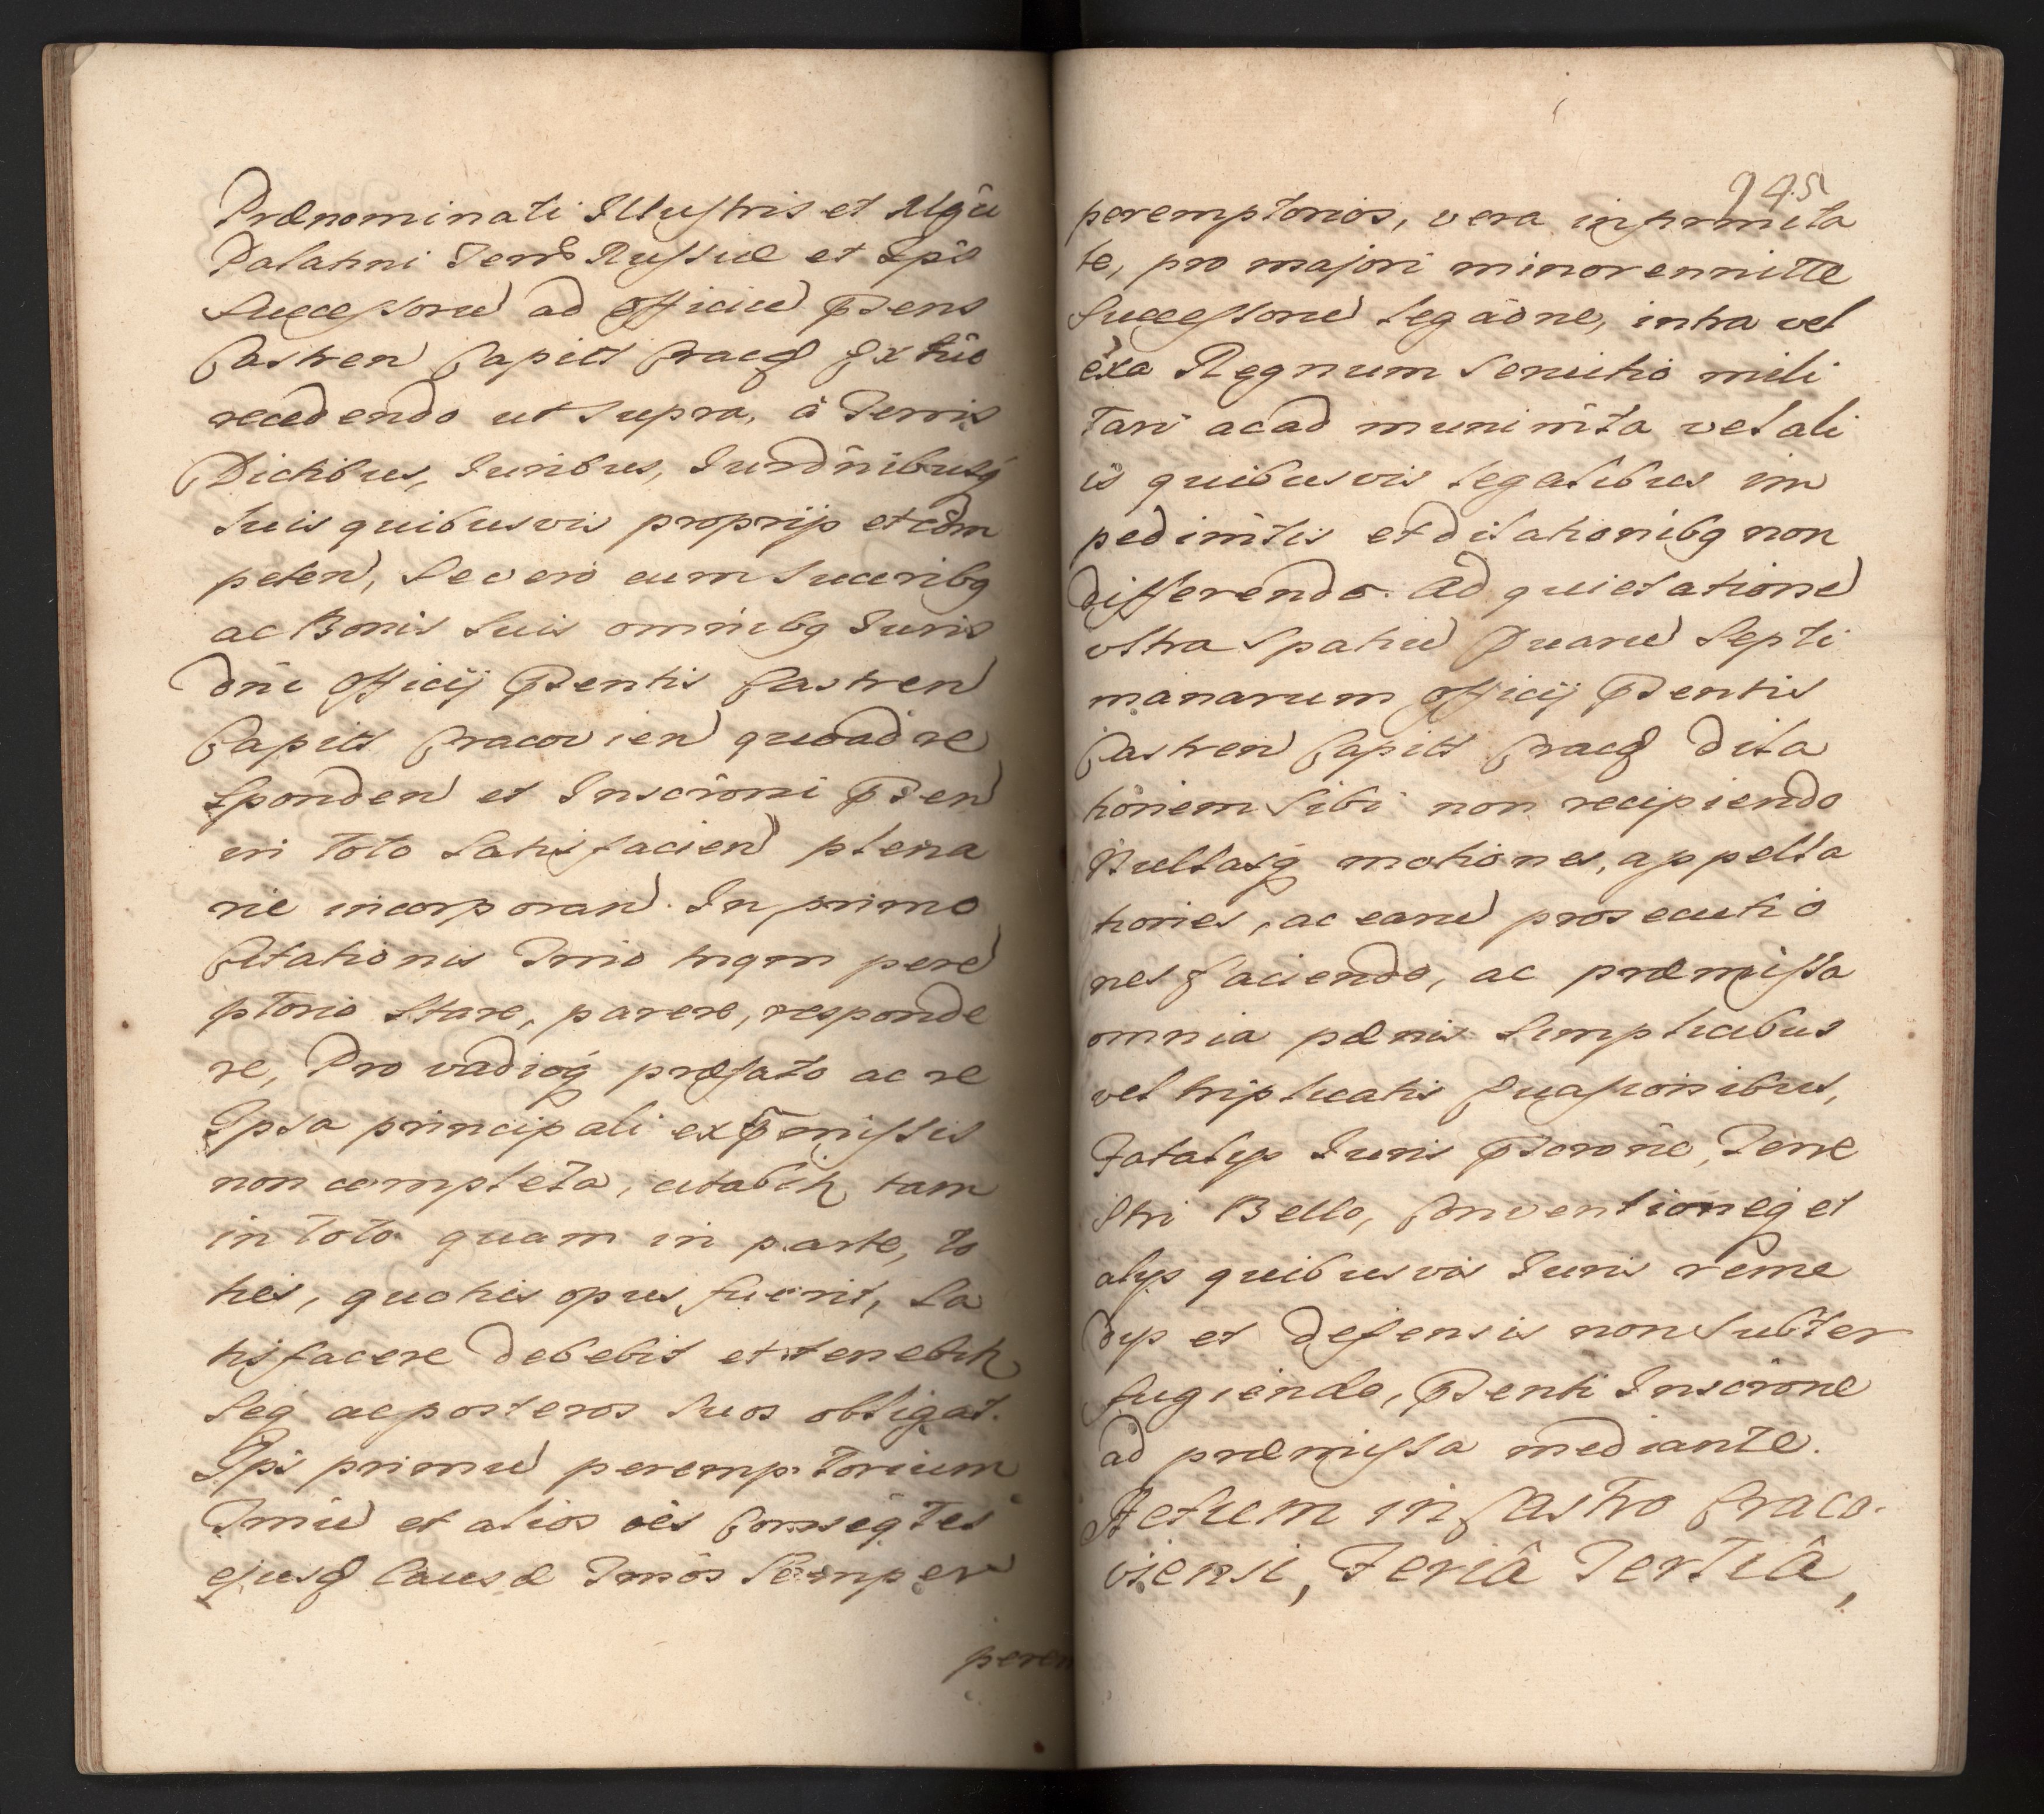 Prænominati Illustris et Mgci
Palatini Terrę Russiæ et Ipsī
Successorū ad officiū p̄sens
Castren Capitt Cracę ex tūc
recedendo ut supra, à Terris
Dictibus, Juribus, Jurdn̄ibusq́
suis quibusvis proprijs et com̄
peten, se vero cum succribq
ac Bonis suis omnibq Juris
dn̄i officij p̄sentis Castren
Capitt Cracovien quoad re
sponden et Inscrōni p̄sen
in toto satisfacien plena
rie incorporan. In primo
Citationis Tm̄io tnqm pere
ptorio stare, parere, responde
re, Pro vadioq́ præfato ac re
Ipsa principali ex p̄missis
non completa, citabitꝛ tam
in toto quam in parte, to
ties, quoties opus fuerit, sa
tisfacere debebit et tenebitꝛ
seq́ ac posteros suos obligat.
Ipē primū peremptorium
Tm̄iū et alios oēs Conseq̄tes
ejusd causæ Tm̄os semper
perem
945
peremptorios, vera infirmita
te, pro majori minorennitte
Successorū legāōne, intra vel
ēxa Regnum servitio mili
tari ac ad munim̄ta vel ali
is quibusvis legalibus im
pedim̄tis et dilationibq non
differendo. Ad quietationē
ultra spatiū Duarū septi
manarum officij p̄sentis
Castren Capitt Cracę dila
tionem sibi non recipiendo
Nullasq́ motiones, appella
tiones, ac earū prosecutio
nes faciendo, ac præmissa
omnia pænis simplicibus
vel triplicatis Evasionibus,
Fatalijs Juris p̄scrōne, Terre
stri Bello, Conventioneq́ et
alijs quibusvis Juris reme
dijs et defensis non subter
fugiendo, p̄senti Inscrōne
ad præmissa mediante.
Actum in Castro Craco-
viensi, Feriâ Tertiâ,